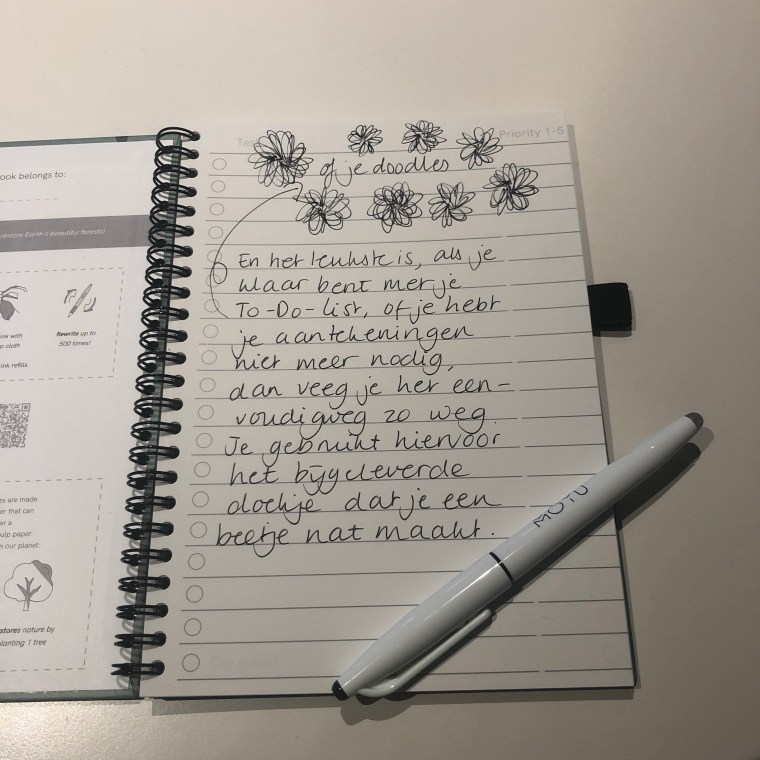 ook belongs to:
restore Earth's beautiful forests!
ink with
p cloth
ink refills.
Rewrite up to
500 times!
es are made
er that can
er a
ulp paper.
n our planet:
stores nature by
lanting 1 tree
Priority 1-5
of je doodles
En het leukste is, als je
klaar bent met je
To-Do-list, of je hebt
je aantekeningen
niet meer nodig,
dan veeg je het een-
voudigweg zo weg.
Je gebruikt hiervoor
het bijgeleverde
doekje dat je een
beetje nat maakt.
Do good
MOYU